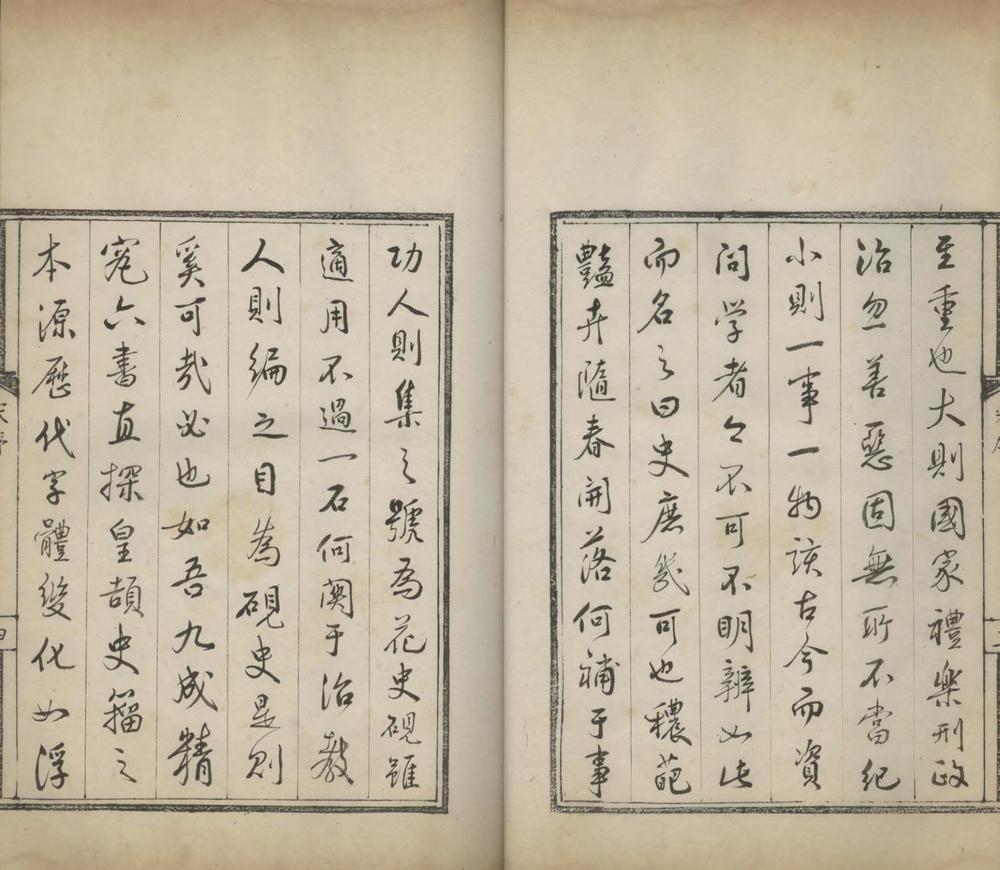 至重也大則國家禮樂刑政
治忽善惡固無所不當紀
小則一事一物該古今而資
問学者々不可不明辨如此
而名之曰史庶幾可也穠葩
豔卉隨春開落何補于事
功人則集之號為花史硯雖
適用不過一石何関于治教
人則編之目為硯史是則
奚可哉必也如吾九成精
究六書直探皇頡史籀之
本源歷代字體變化如浮